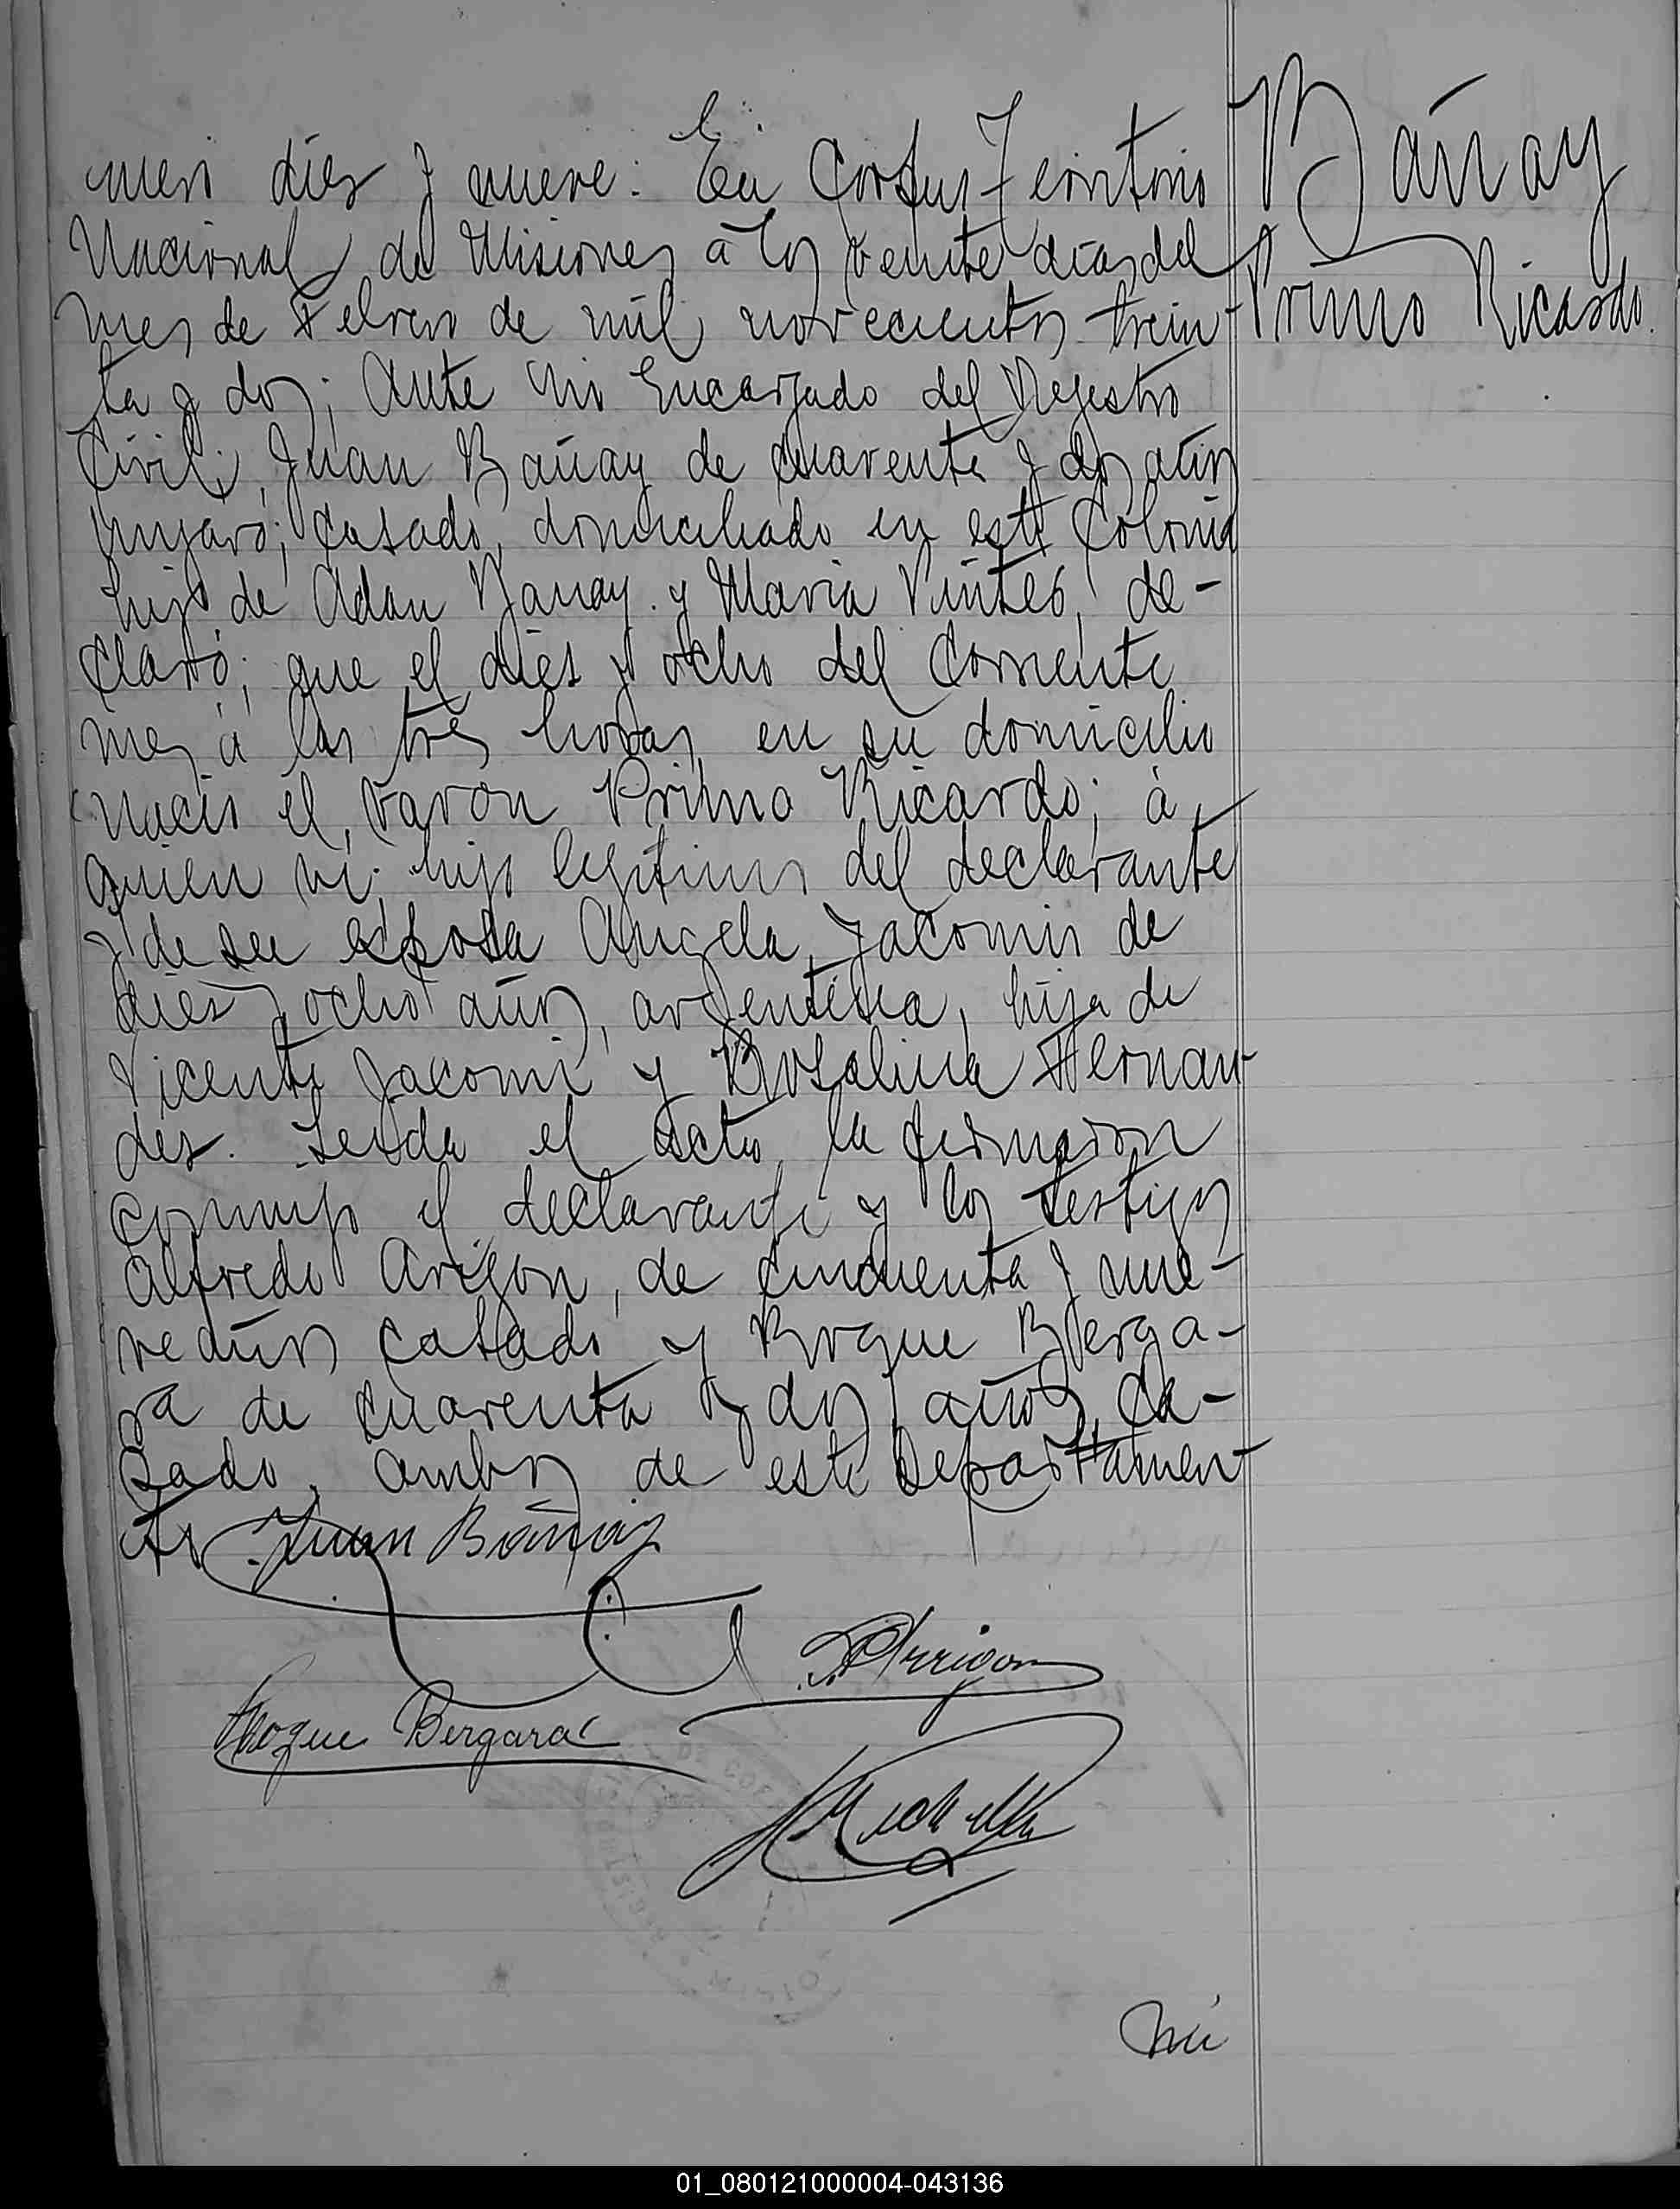 Bañay
Primo Ricardo.
mero diez y nueve: En Corpus Territorio
Nacional de Misiones a los veinte dias del
mes de Febrero de mil novecientos trein-
ta y dos; Ante mi Encargado del Rejistro
Civil; Juan Bañay de cuarenta y dos años
casado, domiciliado en esta Colonia
hijo de Adan Bañay y Maria de-
claró; que el dies y ocho del corriente
mes á las tres horas en su domicilio
nació el varon Primo Ricardo; á
quien vi; hijo legitimo del declarante
y de su esposa Angela Jacomin de
dies y ocho años, argentina, hija de
Vicente Jacomi y Rosalina Fernan-
des. Leida el acta la firmaron
conmigo el declarante y los testigos
Alfredo Arigon, de cincuenta y nue-
ve años casado y Roque Berga-
ra de cuarenta y dos años, ca-
sado, ambos de este Departamen-
to
Juan Bañay
Arrigon
Roque Bergara
Nú
01_080121000004-043136